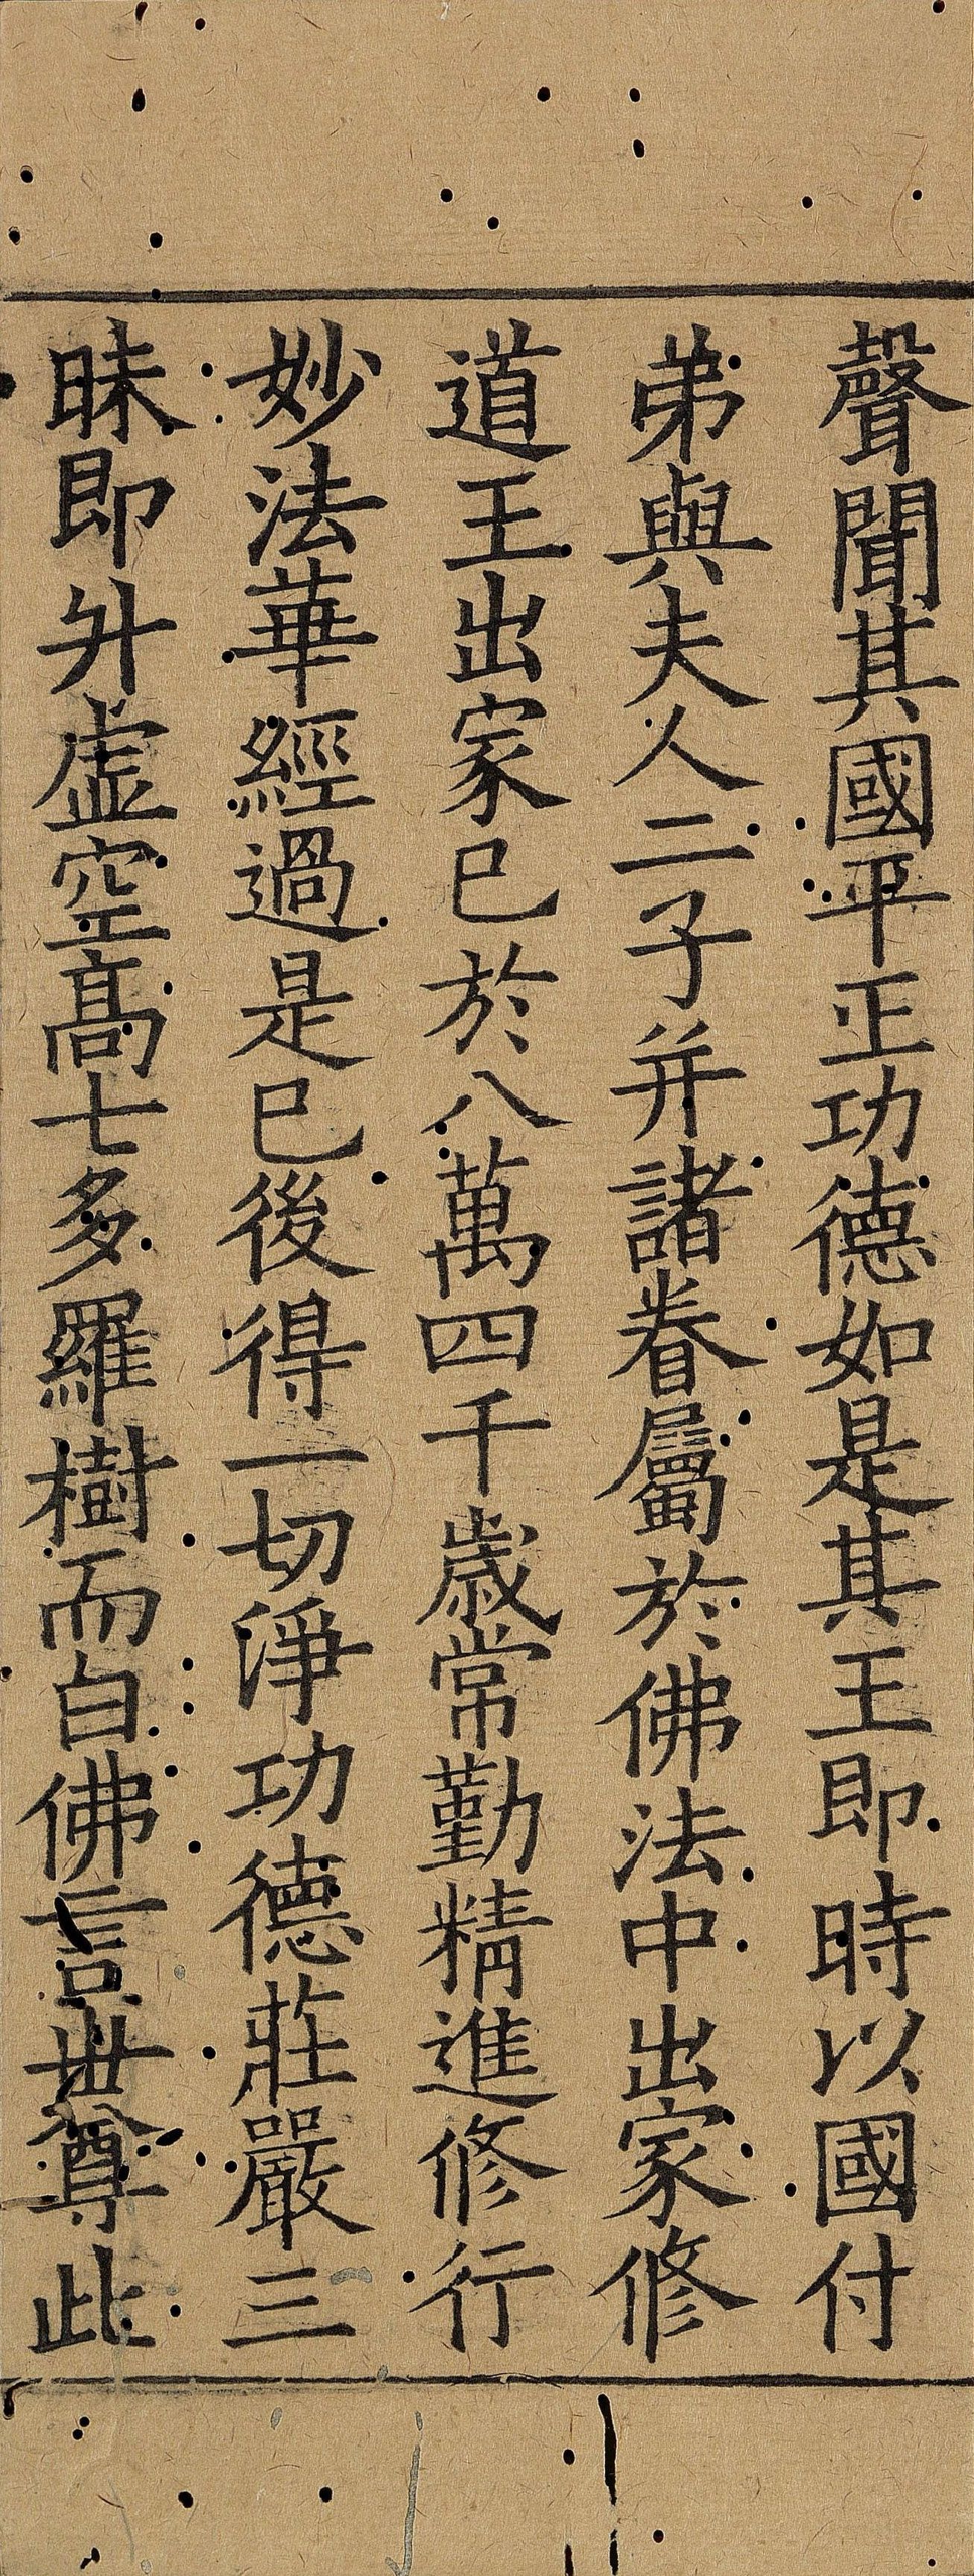 聲聞其國平正功德如是其王即時以國付
弟與夫人二子并諸眷屬於佛法中出家修
道王出家已於八萬四千歲常勤精進修行
妙法華經過是已後得一切淨功德莊嚴三
昧即升虛空高七多羅樹而白佛言世尊此